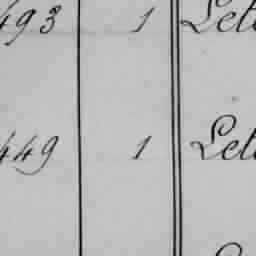 493 1 Let
449 1 Let